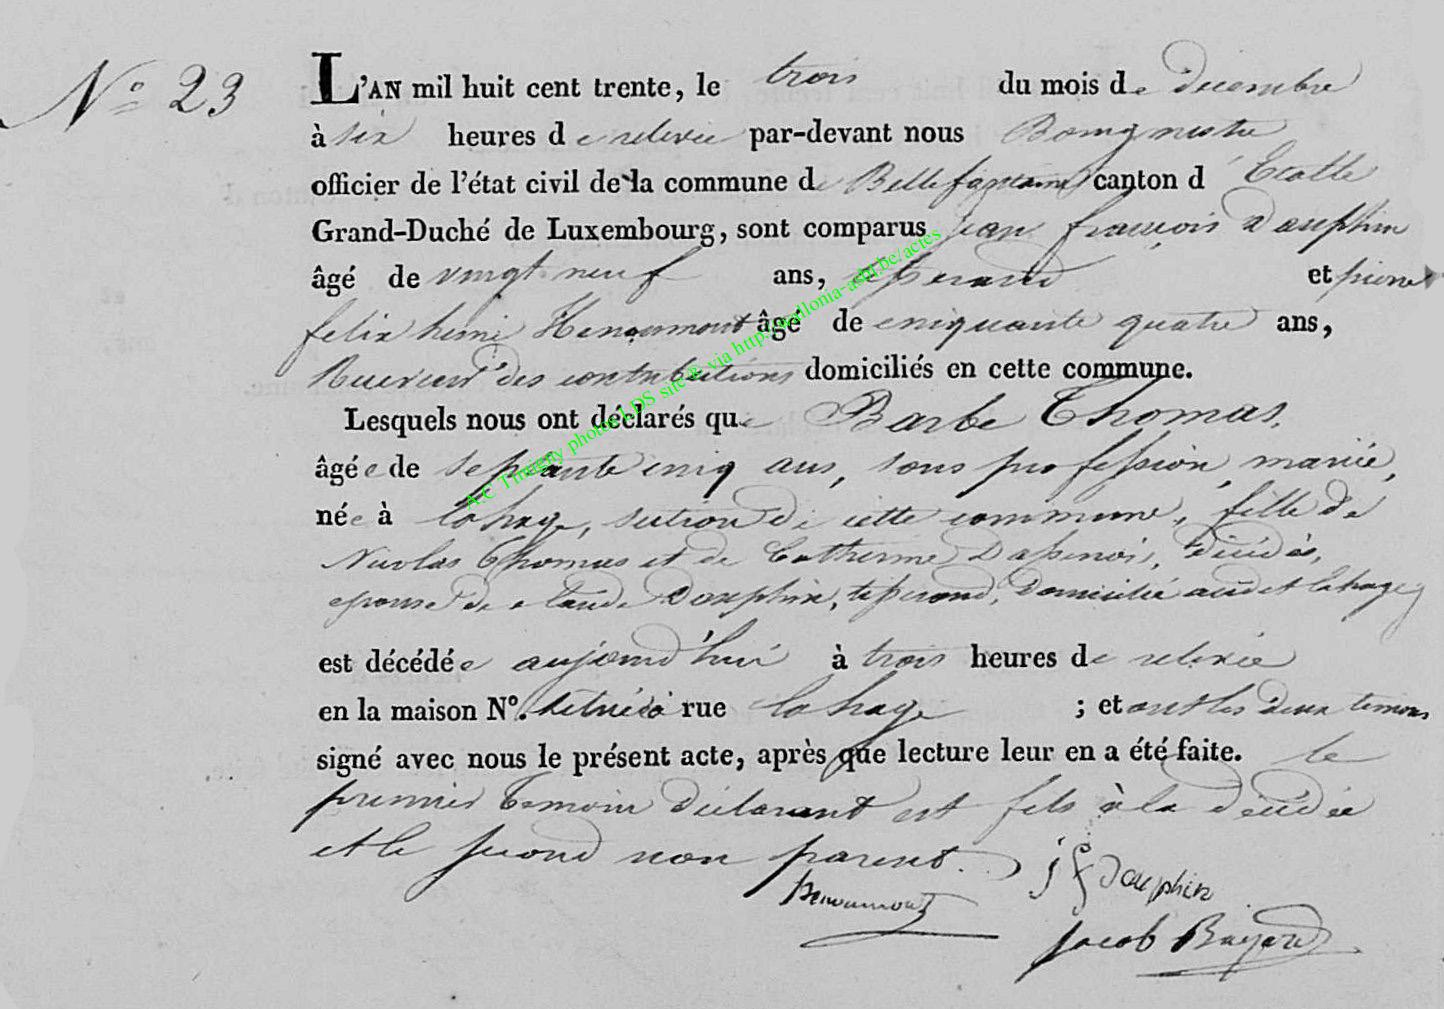 N° 23
L'AN mil huit cent trente, le trois du mois de decembre
à six heures de relevée par-devant nous Bourgmestre
officier de l'état civil de la commune de Bellefontaine canton d'Etalle
Grand-Duché de Luxembourg, sont comparus jean françois Dauphin
âgé de vingt neuf ans, tisserand et pierre
felix henri Henoumont âgé de cinquante quatre ans,
Receveur des contributions domiciliés en cette commune.
Lesquels nous ont déclarés que Barbe Thomas,
âgée de septante cinq ans, sans profession, mariée,
née à lahage, section de cette commune, fille de
Nicolas Thomas et de Catherine Dassenois, décédés,
epouse de claude Dauphin, tisserand, domicilié audit lahage,
est décédée aujourd'hui à trois heures de relevée
en la maison N°. située rue lahage ; et ont les deux temoins
signé avec nous le présent acte, après que lecture leur en a été faite. le
premier temoin déclarant est fils à la décédée
et le second non parent.
Henoumont
j f Dauphin
Jacob Bayard
A.C Timagny photos LDS site © via http://wallonia-asbl.be/actes